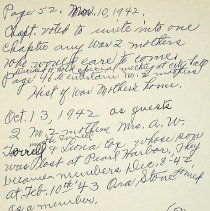 Page 52. Nov. 10, 1942.
Chapt. voted to unite into one
chapter any War 2 mothers
who would care to come
Page 46 to entertain No. 2 mothers
Hist of War Mothers home.
Oct. 13, 1942 as guests
2 No. 2 mothers Mrs. A. W.
& Leona Cox whose son
was lost at Pearl Harbor. They
became members Dec. 8-42
at Feb. 10th '43 Ora Stone
as a member.